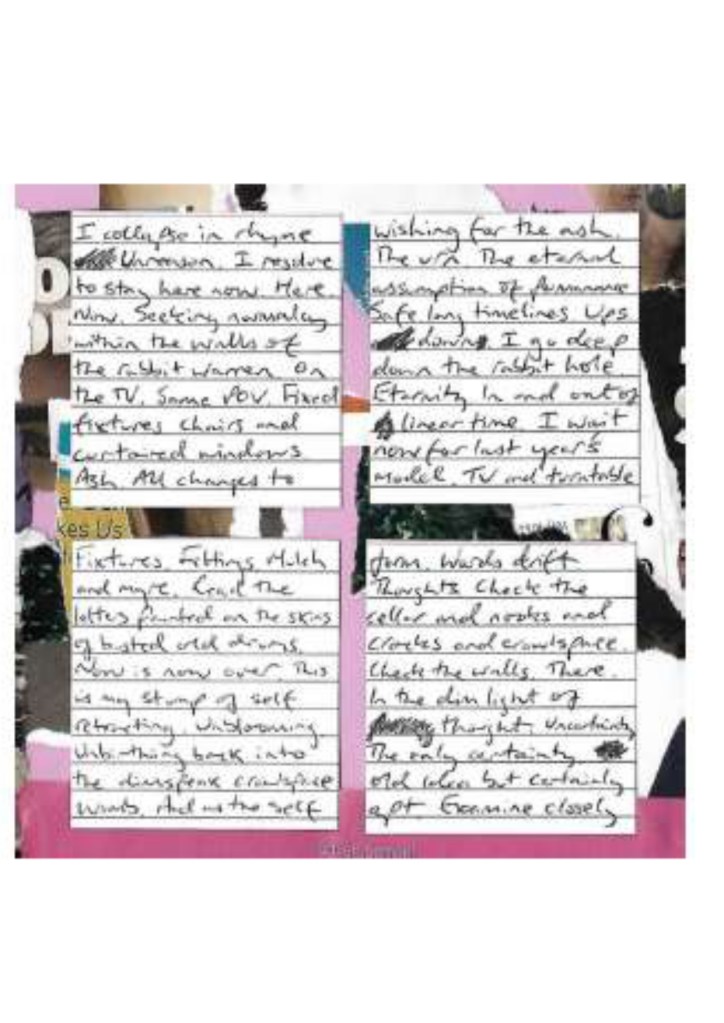 I collapse in rhyme
Unreason. I resolve
to stay here now. Here.
Now. Seeking normalcy
within the walls of
the rabbit warren. On
the TV. Same POV. Fixed
fixtures chairs and
curtained windows
Ash. All changes to
wishing for the ash.
The urn. The eternal
assumption of permanence
Safe long timelines Ups
downs. I go deep
down the rabbit hole.
Eternity. In and out of
linear time. I wait
now for last year's
model. TV and turntable
kes Us
Fixtures. Fittings. Mulch
and more. Read the
letters painted on the skins
of busted old drums.
Now is now over. This
is my stump of self
retracting. Unblooming.
Unbirthing back into
the dimspeak crawlspace
words. And as the self
form. Words drift
Thoughts Check the
cellar and nooks and
cracks and crawlspace.
Check the walls. There.
In the dim light of
thought. Uncertainty
The only certainty
old idea but certainly
apt. Examine closely